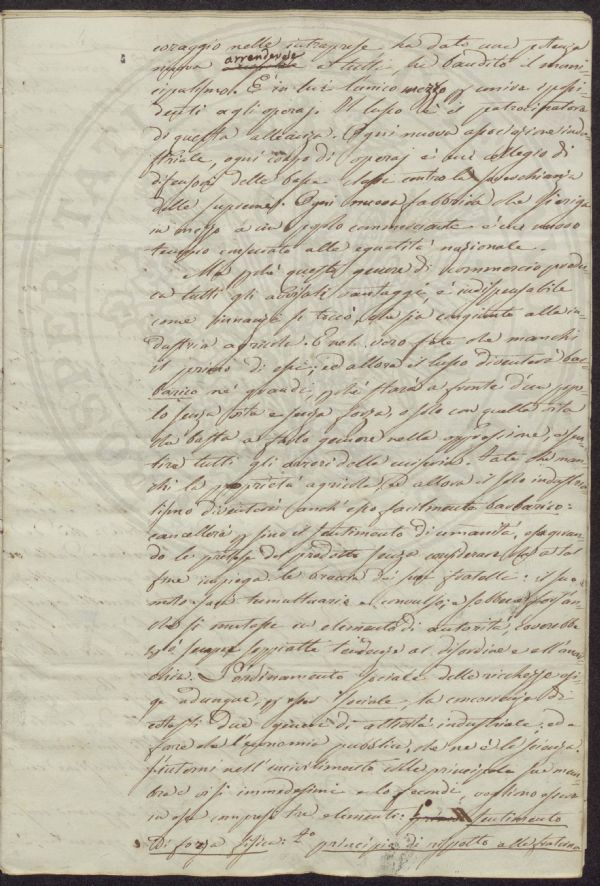 coraggio nelle intraprese ha dato una potenza
nuova arrendevole e tutti ha bandito il muni-
cipalismo. È in lui l'unico mezzo p unire i possi-
denti agli operaj. Il lusso è il patrocinatore
di questa alleanza. Ogni nuova associazione indu-
striale, ogni corpo di operaj è un collegio di
difensori delle basse classi contro la soverchianza
delle supreme. Ogni nuova fabbrica che si erige
in mezzo a un popolo commerciante è un nuovo
tempio consacrato alla egualità nazionale.
Ma perché questo genere di commercio produ-
ca tutti gli avvisati vantaggi, è indispensabile
come dinnanzi si toccò, che sia congiunto alla in-
dustria agricola. E nel vero fate che manchi
il primo di essi, ed allora il lusso diventerà bar-
barico ne' grandi, p che starà a fronte d'un popo-
lo senza arte e senza forza, o solo con quella vita
che basta a farlo gemere nella oppressione, e sen-
tire tutti gli orrori della miseria. Fate che man-
chi la proprietà agricola, ed allora il solo industria-
lismo diventerà anch'esso facilmente barbarico:
cancellerà p fino il sentimento di umanità, esaguan-
do le pretese del prodotto senza considerare che a tal
fine impiega le braccia dei suoi fratelli: il suo
moto sarà tumultuario e convulso; e sebbene
si mutasse in elemento di autorità, avrebbe
sempre soppiatte tendenze al disordine e all'anar-
chia. L'ordinamento sociale delle ricchezze esi-
ge adunque, p esser sociale, la concorrenza di
cotesti due generi di attività industriale; ed a
fare che l'economia pubblica, che ne è la scienza,
ritorni nell'incivilimento come principale sua mem-
bra e vi si immedesimi e lo fecondi, vogliono esser
in essa compresi tre elementi: 1º sentimento
di forza fisica: 2º principio di rispetto alle